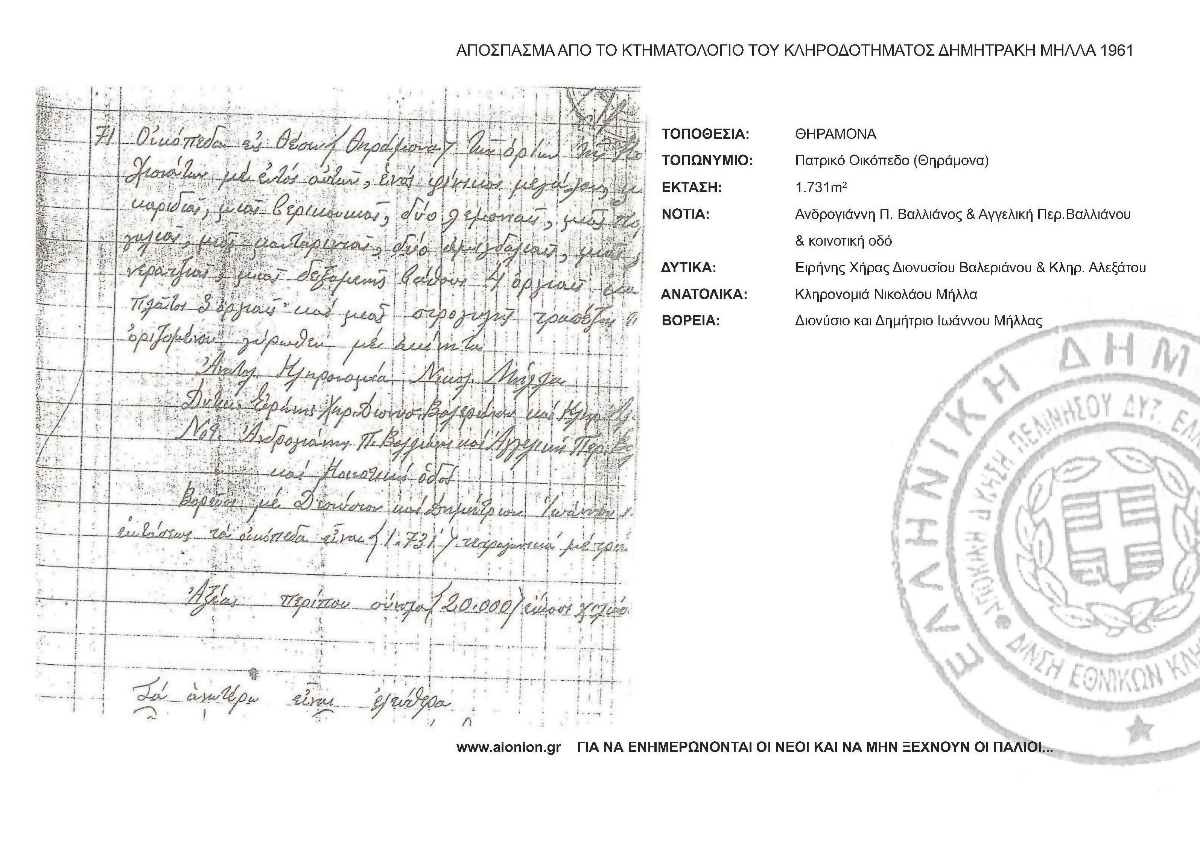 ΑΠΟΣΠΑΣΜΑ ΑΠΟ ΤΟ ΚΤΗΜΑΤΟΛΟΓΙΟ ΤΟΥ ΚΛΗΡΟΔΟΤΗΜΑΤΟΣ ΔΗΜΗΤΡΑΚΗ ΜΗΛΛΑ 1961
71 Οἰκόπεδα εἰς θέσιν (Θηράμονα) τῆς
μὲ ἐντὸς αὐτῶν, ἑνὸς φοίνικος μεγάλου,
καρυδιᾶς, μιᾶς βερικοκιᾶς, δύο λεμονιαῖς, μιᾶς
μιᾶς μανταρινιᾶς, δύο ἀμυγδαλιαῖς, μιᾶς
νεραντζιᾶς, μιᾶς δεξαμενῆς βάθους 4 ὀργιαῖς
πλάτος 3 ὀργιαῖς καὶ μιᾶς στρογγυλῆς
ὁριζομένου γύρωθεν μὲ
Ἀνατ. Κληρονομία Νικολ. Μήλλα
Δυτικ. Εἰρήνης Χηρ. Διονυσ. Βαλεριάνου καὶ Κληρ.
Νοτ. Ἀνδρογιάννη Π. Βαλλιάνος καὶ Ἀγγελικὴ Περ.
καὶ Κοινοτικὴ ὁδὸς
Βορείως μὲ Διονύσιον καὶ Δημήτριον Ἰωάννου
ἐκτάσεως τὰ οἰκόπεδα εἶναι (1.731) τετραγωνικὰ μέτρα
Ἀξίας περίπου (20.000) εἴκοσι
Τὰ ἀνωτέρω εἶναι ἐλεύθερα
ΤΟΠΟΘΕΣΙΑ: ΘΗΡΑΜΟΝΑ
ΤΟΠΩΝΥΜΙΟ: Πατρικό Οικόπεδο (Θηράμονα)
ΕΚΤΑΣΗ: 1.731m²
ΝΟΤΙΑ: Ανδρογιάννη Π. Βαλλιάνος & Αγγελική Περ.Βαλλιάνου
& κοινοτική οδό
ΔΥΤΙΚΑ: Ειρήνης Χήρας Διονυσίου Βαλεριάνου & Κληρ. Αλεξάτου
ΑΝΑΤΟΛΙΚΑ: Κληρονομιά Νικολάου Μήλλα
ΒΟΡΕΙΑ: Διονύσιο και Δημήτριο Ιωάννου Μήλλας
ΕΛΛΗΝΙΚΗ ΔΗΜ
ΠΕΛ/ΝΗΣΟΥ ΔΥΤ. ΕΛ
Δ/ΝΣΗ ΕΘΝΙΚΩΝ ΚΛΗ
www.aionion.gr ΓΙΑ ΝΑ ΕΝΗΜΕΡΩΝΟΝΤΑΙ ΟΙ ΝΕΟΙ ΚΑΙ ΝΑ ΜΗΝ ΞΕΧΝΟΥΝ ΟΙ ΠΑΛΙΟΙ...